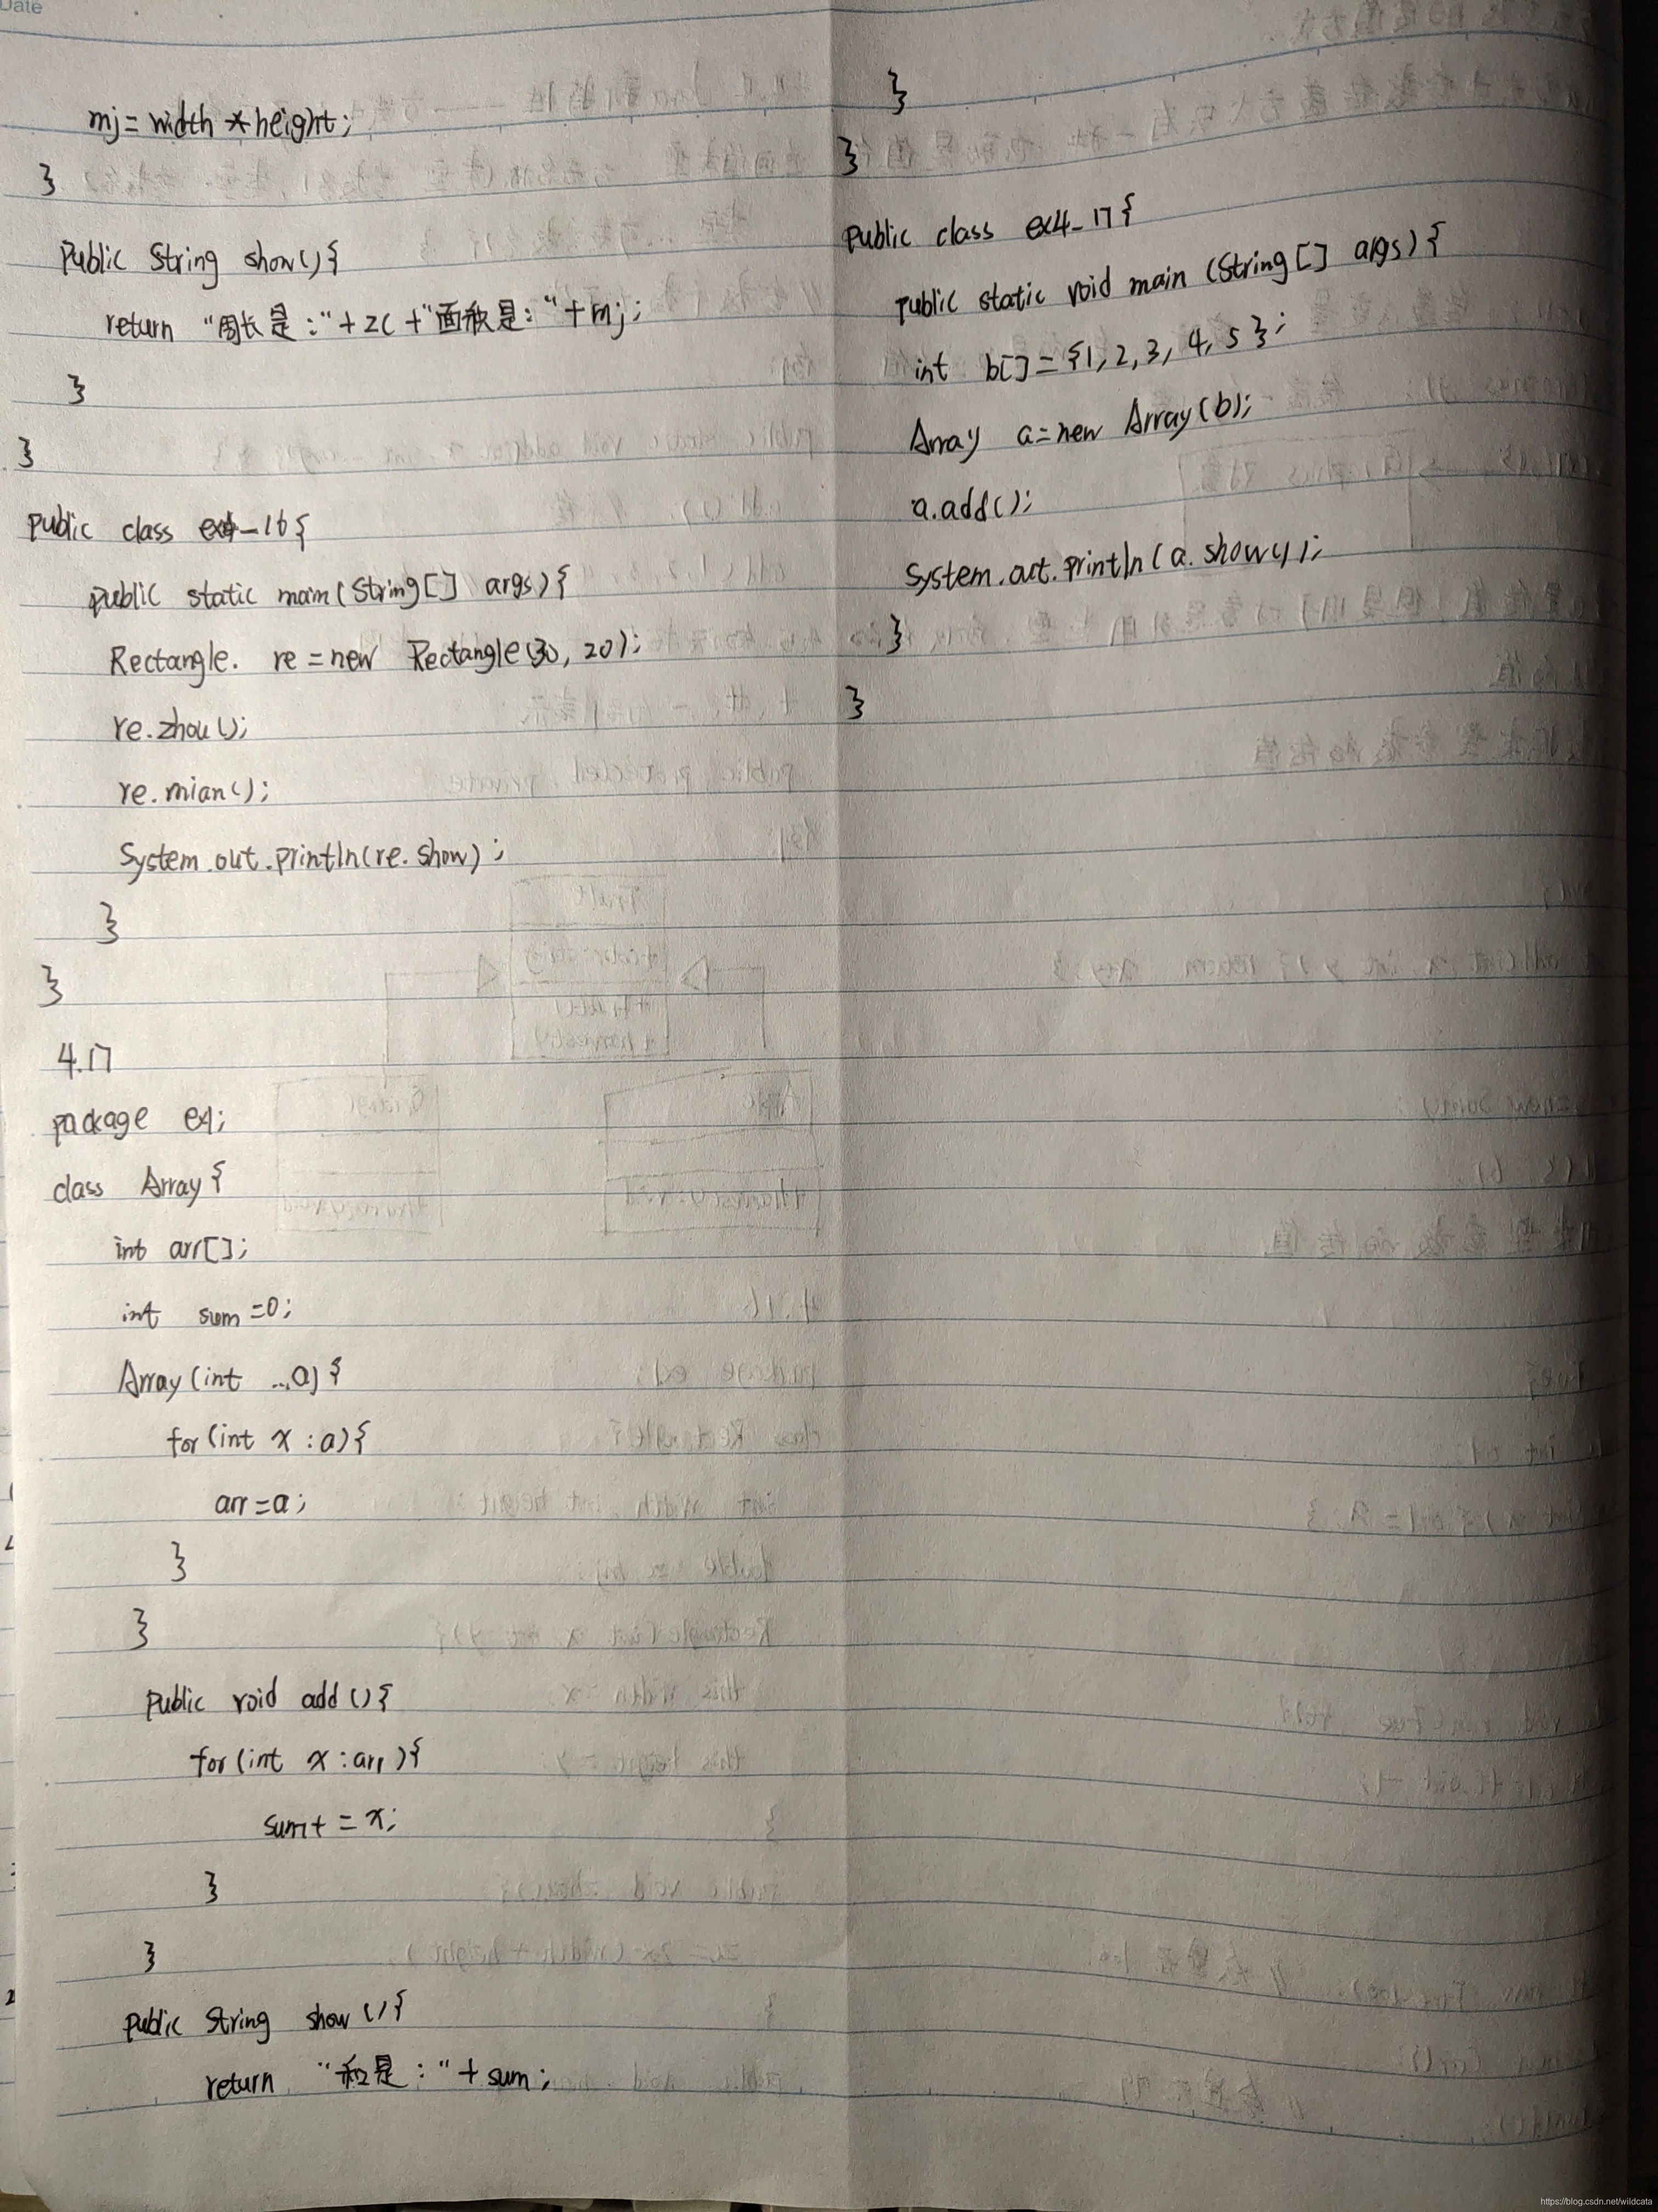 Date
mj = width * height;
}
public String show(){
return "周长是:" + zc + "面积是:" + mj;
}
}
public class ex4_16{
public static main(String[] args){
Rectangle. re = new Rectangle(30, 20);
re.zhou();
re.mian();
System.out.println(re.show);
}
}
4.17
package ex1;
class Array{
int arr[];
int sum = 0;
Array(int ...a){
for(int x : a){
arr = a;
}
}
public void add(){
for(int x : arr){
sum+ = x;
}
}
public String show(){
return "和是:" + sum;
}
}
public class ex4_17{
public static void main(String[] args){
int b[] = {1, 2, 3, 4, 5};
Array a = new Array(b);
a.add();
System.out.println(a.show());
}
}
https://blog.csdn.net/wildcata